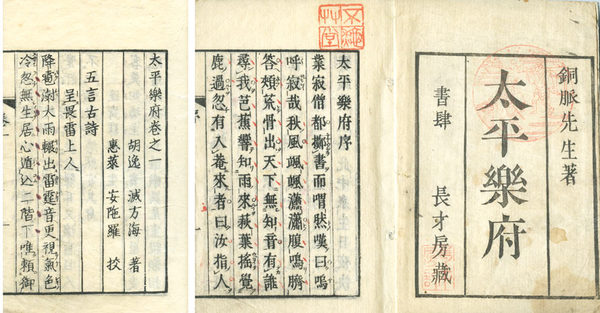 銅脈先生著
太平樂府
書肆 長才房藏
太平樂府序
業寂僧都擲書而喟然嘆曰嗚
呼寂哉秋風颯颯瀟瀟腹鳴臍
答頰荒骨出天下無知音有誰
尋我芭蕉響知雨來萩葉搖覺
鹿過忽有入菴來者曰汝指人
序
太平樂府卷之一
胡逸 滅方海 著
惠萊 安陀羅 挍
五言古詩
呈畏雷上人
降雹澍大雨輙出雷霆音更視氣色
冷忽無生居心遁込二階下唯賴御